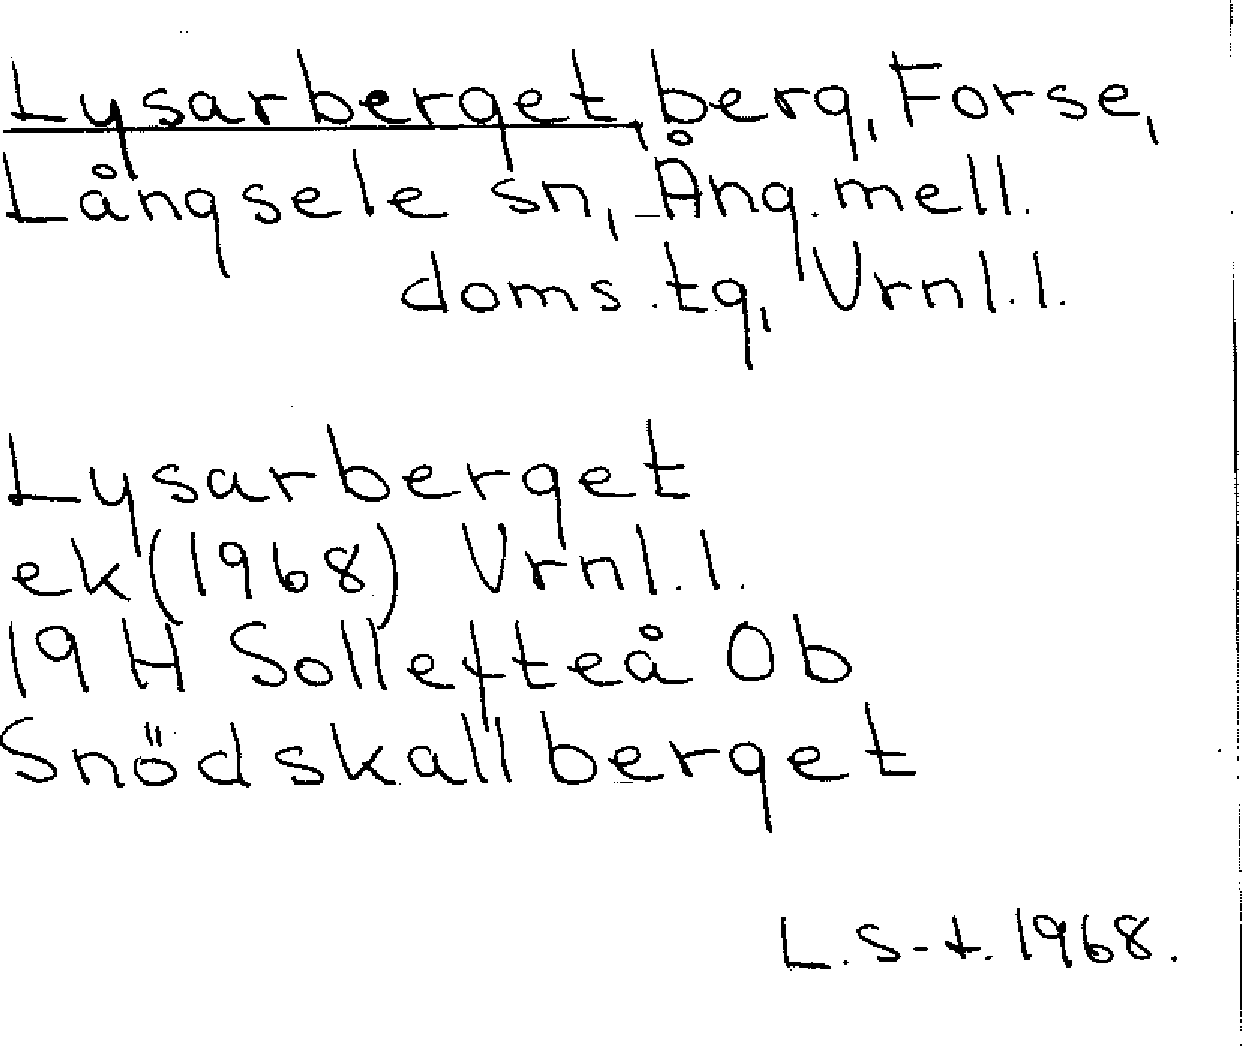 Lysarberget, berg, Forse,
Långsele sn, Ång. mell.
doms. tg, Vrnl. l.
Lysarberget
ek (1968) Vrnl. l.
19 H Sollefteå Ob
Snödskallberget
L. S-t. 1968.